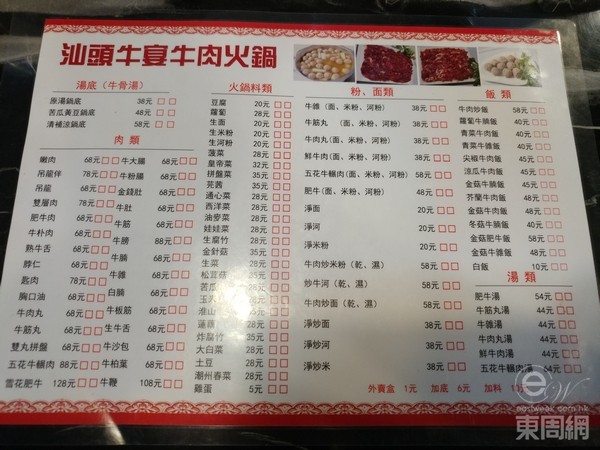 汕頭牛宴牛肉火鍋
湯底（牛骨湯）
原湯鍋底 38元 □ □
苦瓜黃豆鍋底 48元 □ □
清補涼鍋底 58元 □ □
肉類
嫩肉 68元 □ □ 牛大腸 68元 □ □
吊龍伴 78元 □ □ 牛粉腸 68元 □ □
吊龍 68元 □ □ 金錢肚 68元 □ □
雙層肉 78元 □ □ 牛肚 68元 □ □
肥牛肉 68元 □ □ 牛筋 68元 □ □
牛朴肉 68元 □ □ 牛膀 88元 □ □
熟牛舌 68元 □ □ 牛腩 68元 □ □
脖仁 68元 □ □ 牛雜 68元 □ □
匙肉 78元 □ □ 白腩 68元 □ □
胸口油 68元 □ □ 牛板筋 68元 □ □
牛肉丸 68元 □ □ 生牛舌 68元 □ □
牛筋丸 68元 □ □ 牛沙包 68元 □ □
雙丸拼盤 68元 □ □ 牛柏葉 68元 □ □
五花牛輾肉 88元 □ □ 牛鞭 108元 □ □
雪花肥牛 128元 □ □
火鍋料類
豆腐 20元 □ □
蘿蔔 20元 □ □
生面 20元 □ □
生米粉 20元 □ □
生河粉 20元 □ □
菠菜 28元 □ □
皇帝菜 28元 □ □
拼盤菜 35元 □ □
芫茜 35元 □ □
通心菜 28元 □ □
西洋菜 28元 □ □
油麥菜 28元 □ □
娃娃菜 28元 □ □
生腐竹 28元 □ □
金針菇 28元 □ □
生菜 28元 □ □
松茸菇 28元 □ □
苦瓜 28元 □ □
玉 28元 □ □
淮山 □ □
蓮藕 □ □
炸腐竹 □ □
大白菜 28元 □ □
土豆 28元 □ □
潮州春菜 28元 □ □
雞蛋 5元 □ □
粉、面類
牛雜（面、米粉，河粉） 38元 □ □
牛筋丸（面、米粉，河粉） 38元 □ □
牛肉丸（面、米粉，河粉） 38元 □ □
鮮牛肉（面、米粉，河粉） 38元 □ □
五花牛輾肉（面、米粉，河粉） 58元 □ □
肥牛（面、米粉，河粉） 48元 □ □
淨面 20元 □ □
淨河 20元 □ □
淨米粉 20元 □ □
牛肉炒米粉（乾、濕） 58元 □ □
炒牛河（乾、濕） 58元 □ □
牛肉炒面（乾、濕） 58元 □ □
淨炒面 38元 □ □
淨炒河 38元 □ □
淨炒米 38元 □ □
外賣盒 1元 加底 6元 加料
飯類
牛肉炒飯 58元 □ □
蘿蔔牛腩飯 50元 □ □
青菜牛肉飯 40元 □ □
青菜牛雜飯 40元 □ □
尖椒牛肉飯 45元 □ □
涼瓜牛肉飯 45元 □ □
金菇牛腩飯 50元 □ □
芥蘭牛肉飯 40元 □ □
金菇牛肉飯 40元 □ □
冬菇牛腩飯 50元 □ □
金菇肥牛飯 50元 □ □
金菇牛雜飯 40元 □ □
白飯 10元 □ □
湯類
肥牛湯 54元 □ □
牛筋丸湯 44元 □ □
牛雜湯 44元 □ □
牛肉丸湯 44元 □ □
鮮牛肉湯 44元 □ □
五花牛輾肉湯 64元 □ □
eastweek.com.hk
東周網